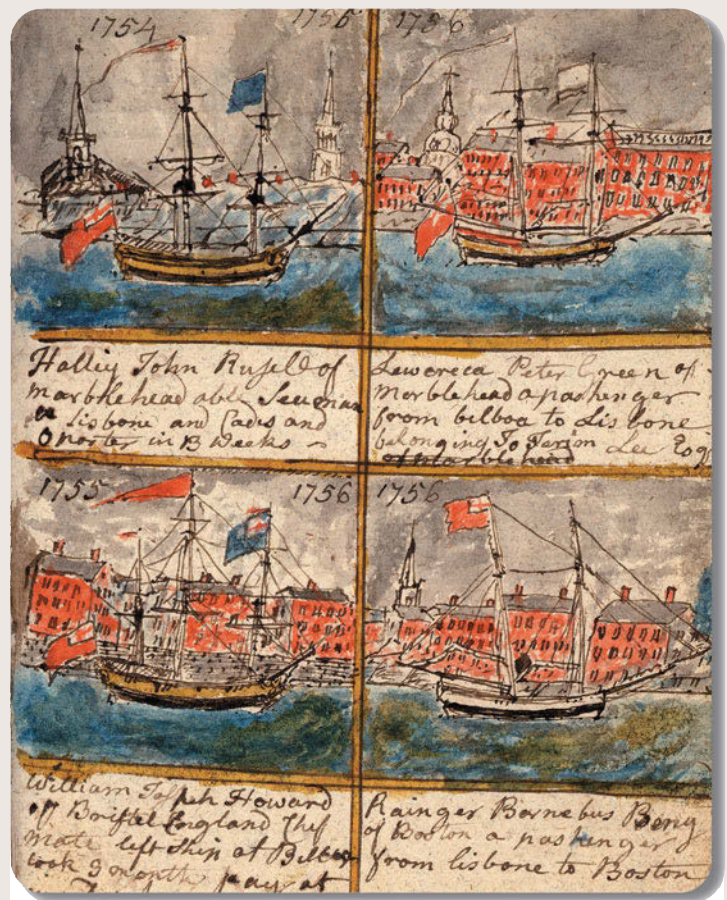 1754 1755
Hallig John Rusell of
marblehead able Seaman
Lisbone and Cades and
Oporter in 13 weeks
1756
Peter Green of
Marblehead a passhenger
from bilboa to Lisbone
belonging To Lee Esqr
of Marblehead
1755 1756
William Joseph Howard
of Bristel England Chef
mate left Ship at
took 3 month pay at
1756
Rainger Barnebus Beny
of Boston a passhenger
from lisbone to Boston